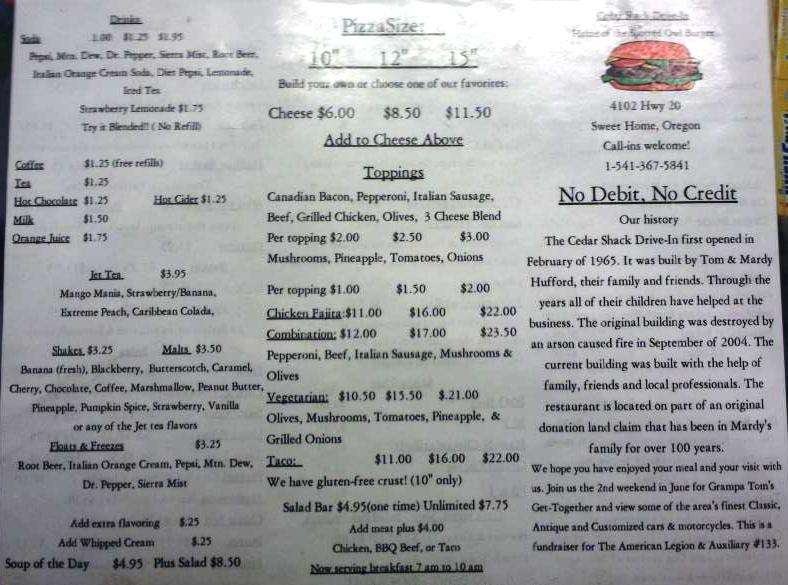 Drinks
Soda 1.00 $1.25 $1.95
Pepsi, Mtn. Dew, Dr. Pepper, Sierra Mist, Root Beer,
Italian Orange Cream Soda, Diet Pepsi, Lemonade,
Iced Tea
Strawberry Lemonade $1.75
Try it Blended!! ( No Refill)
Coffee $1.25 (free refills)
Tea $1.25
Hot Chocolate $1.25 Hot Cider $1.25
Milk $1.50
Orange Juice $1.75
Jet Tea $3.95
Mango Mania, Strawberry/Banana,
Extreme Peach, Caribbean Colada,
Shakes $3.25 Malts $3.50
Banana (fresh), Blackberry, Butterscotch, Caramel,
Cherry, Chocolate, Coffee, Marshmallow, Peanut Butter,
Pineapple, Pumpkin Spice, Strawberry, Vanilla
or any of the Jet tea flavors
Floats & Freezes $3.25
Root Beer, Italian Orange Cream, Pepsi, Mtn. Dew,
Dr. Pepper, Sierra Mist
Add extra flavoring $.25
Add Whipped Cream $.25
Soup of the Day $4.95 Plus Salad $8.50
PizzaSize:
10" 12" 15"
Build your own or choose one of our favorites:
Cheese $6.00 $8.50 $11.50
Add to Cheese Above
Toppings
Canadian Bacon, Pepperoni, Italian Sausage,
Beef, Grilled Chicken, Olives, 3 Cheese Blend
Per topping $2.00 $2.50 $3.00
Mushrooms, Pineapple, Tomatoes, Onions
Per topping $1.00 $1.50 $2.00
Chicken Fajita:$11.00 $16.00 $22.00
Combination: $12.00 $17.00 $23.50
Pepperoni, Beef, Italian Sausage, Mushrooms &
Olives
Vegetarian: $10.50 $15.50 $.21.00
Olives, Mushrooms, Tomatoes, Pineapple, &
Grilled Onions
Taco: $11.00 $16.00 $22.00
We have gluten-free crust! (10" only)
Salad Bar $4.95(one time) Unlimited $7.75
Add meat plus $4.00
Chicken, BBQ Beef, or Taco
Now serving breakfast 7 am to 10 am
Cedar Shack Drive-In
Home of the Spotted Owl Burger
4102 Hwy 20
Sweet Home, Oregon
Call-ins welcome!
1-541-367-5841
No Debit, No Credit
Our history
The Cedar Shack Drive-In first opened in
February of 1965. It was built by Tom & Mardy
Hufford, their family and friends. Through the
years all of their children have helped at the
business. The original building was destroyed by
an arson caused fire in September of 2004. The
current building was built with the help of
family, friends and local professionals. The
restaurant is located on part of an original
donation land claim that has been in Mardy's
family for over 100 years.
We hope you have enjoyed your meal and your visit with
us. Join us the 2nd weekend in June for Grampa Tom's
Get-Together and view some of the area's finest Classic,
Antique and Customized cars & motorcycles. This is a
fundraiser for The American Legion & Auxiliary #133.